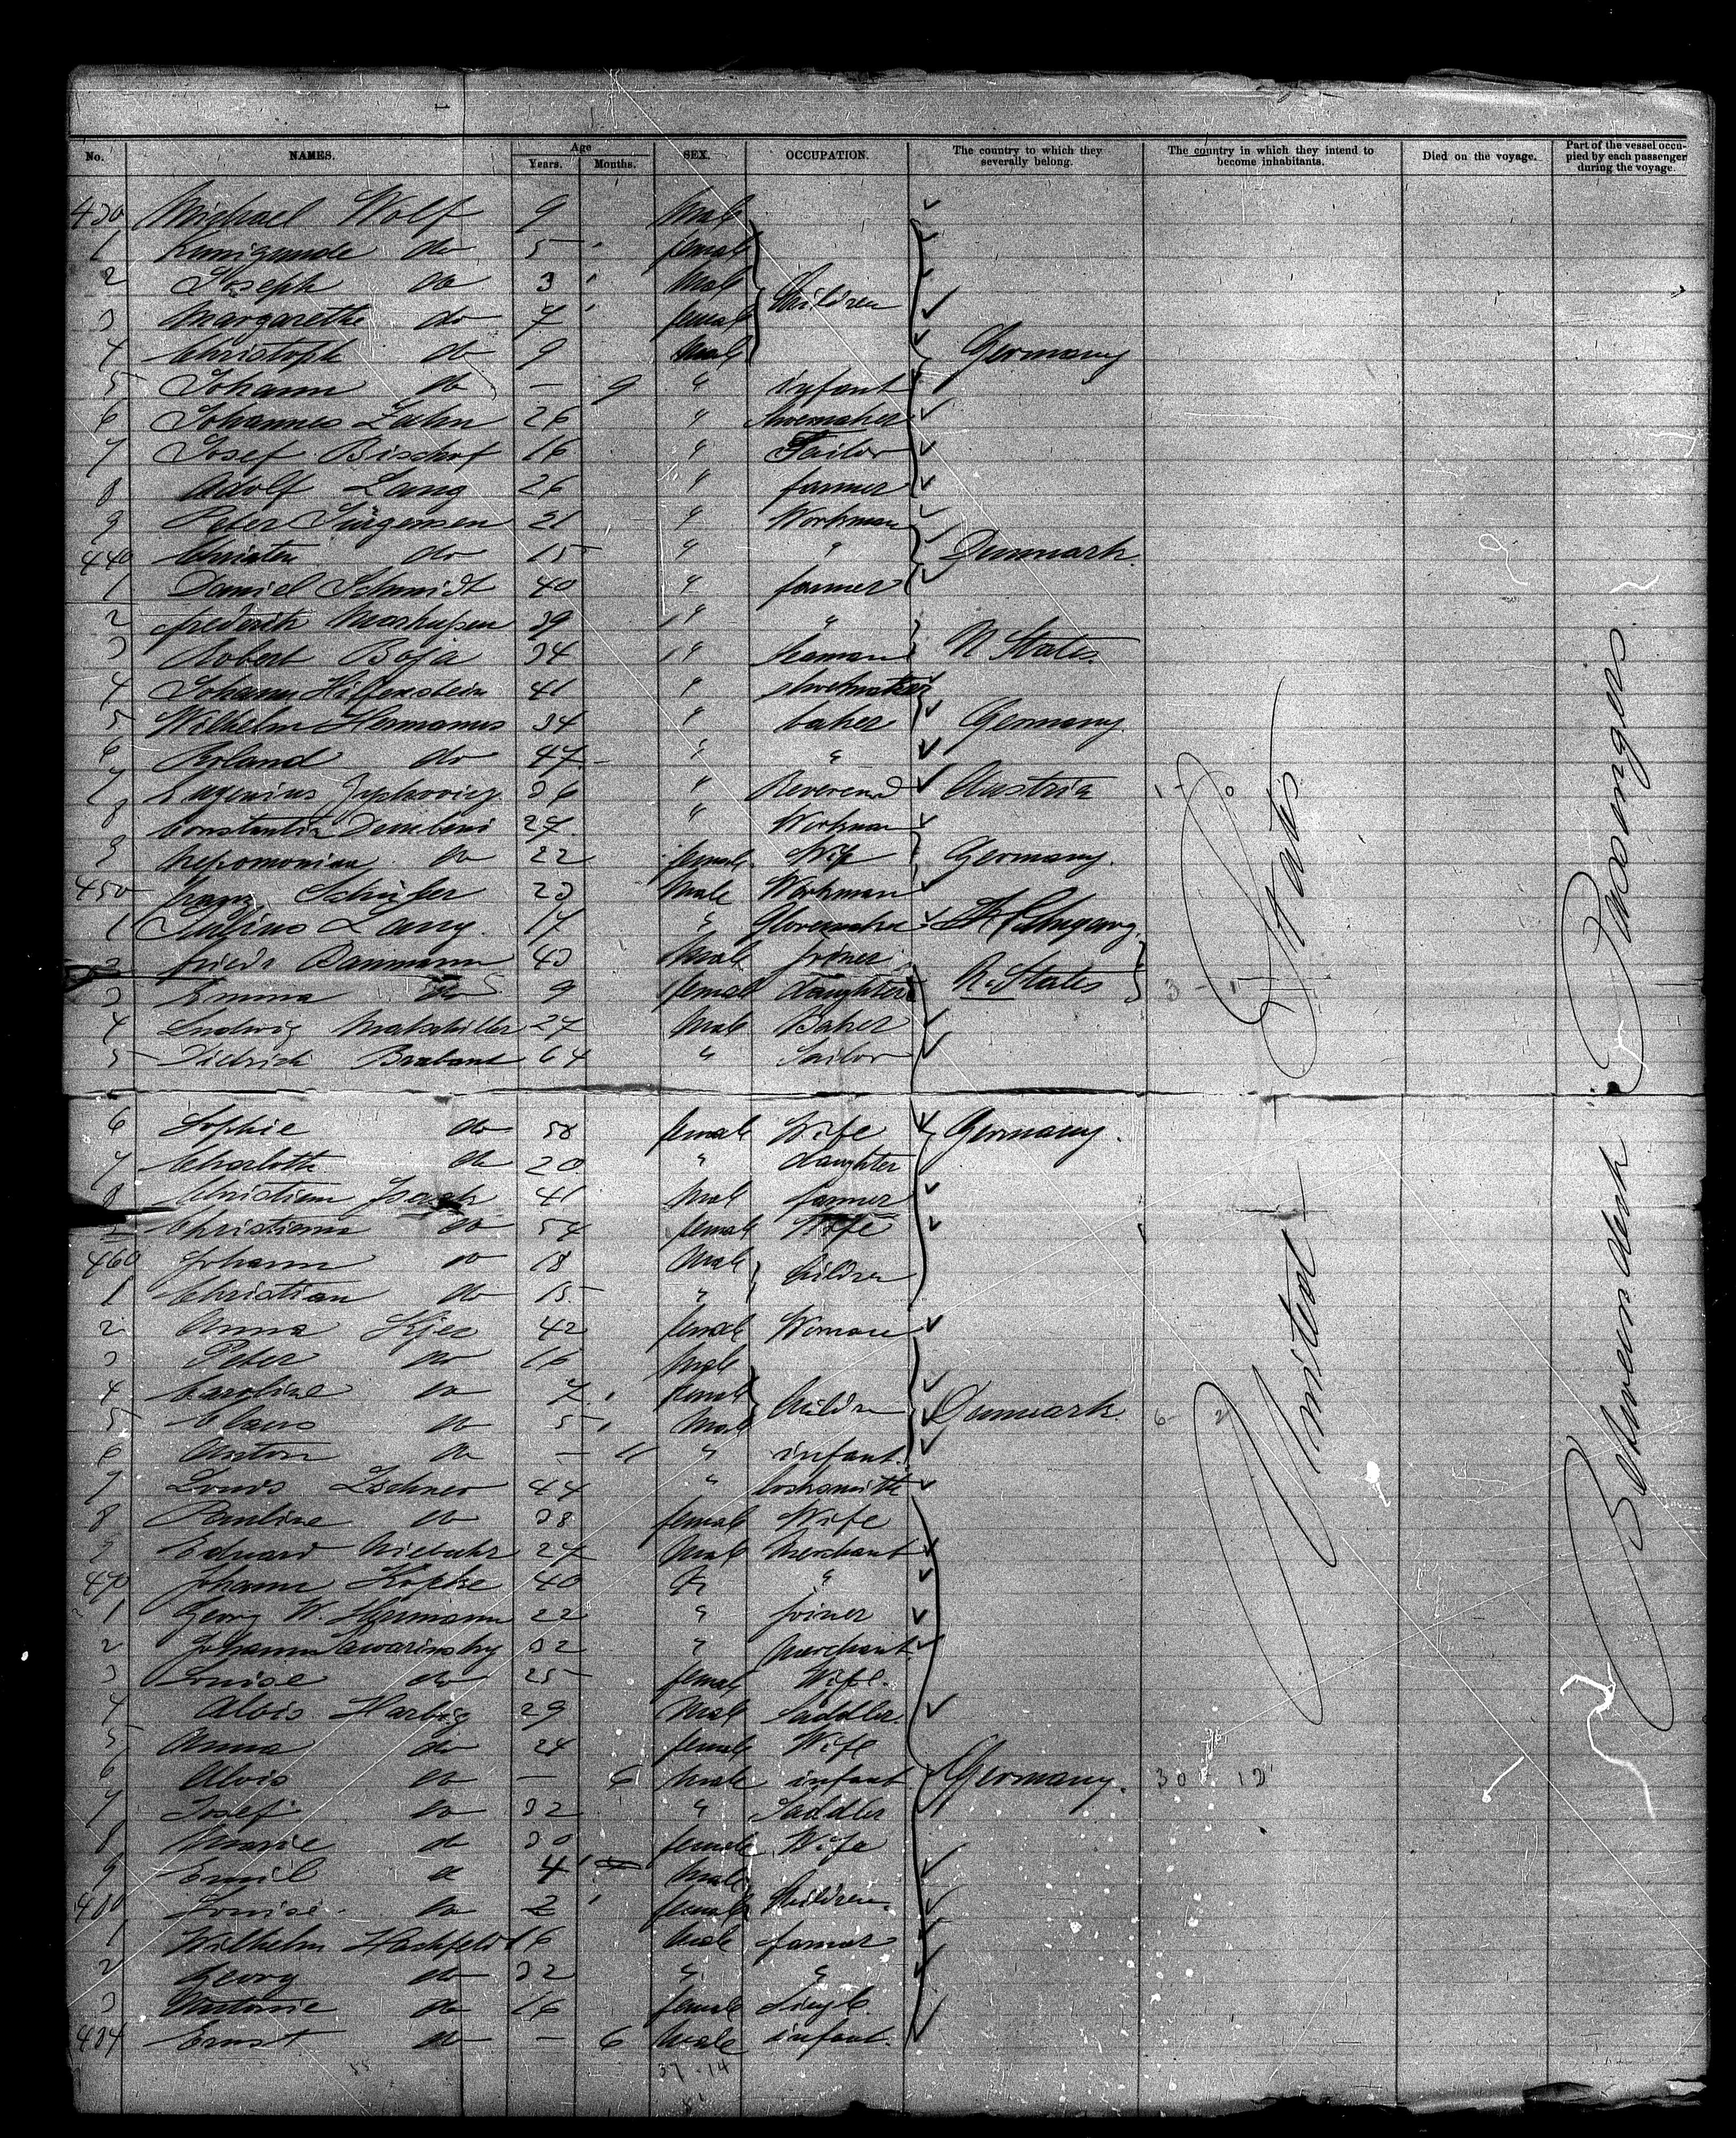 No. NAMES. Age Years. Months. SEX. OCCUPATION. The country to which they severally belong. The country in which they intend to become inhabitants. Died on the voyage. Part of the vessel occupied by each passenger during the voyage.
430 Michael Wolf 9 Male
1 Kunigunde do 5 female
2 Joseph do 3 Male Children
3 Margarethe do 7 female
4 Christoph do 9 Male Germany
5 Johann do — 9 " infant
6 Johannes Zahn 26 " Shoemaker
7 Josef Bischof 16 " Tailor
8 Adolf Lang 26 " farmer
9 Peter Jürgensen 21 " Workman
440 Christen do 15 " " Denmark
1 Daniel Schmidt 40 " farmer
2 39 " "
3 Robert Boja 34 " Seaman U States
4 Johann 41 " shoemaker
5 Wilhelm Hermanns 34 " baker Germany
6 Roland do 47 " "
7 Eugenius 36 " Reverend Austria
8 Constantin 27 " Workman
9 do 22 female Wife Germany.
450 Franz Schäfer 23 Male Workman
1 Julius Lang 17 "
2 Friedr Baumann 43 Male joiner
3 Emma do 9 female daughter U. States
4 Ludwig 27 Male Baker
5 Diedrich Brabant 64 " Sailor
6 Sophie do 58 female Wife Germany.
7 Charlotte do 20 " daughter
8 Christian 41 Male farmer
9 Christiane do 54 female Wife
460 Johann do 18 Male Children
1 Christian do 15 "
2 Anna Kjer 42 female Woman
3 Peter do 16 Male
4 Caroline do 7 female Children
5 Claus do 5 Male Denmark
6 Anton do — 11 " infant
7 Louis 44 " Locksmith
8 Pauline do 38 female Wife
9 Eduard Niebuhr 27 Male Merchant
470 Johann Kopke 40 "
1 Georg W. Hermann 22 " joiner
2 Johann Sawarinsky 32 " Merchant
3 Louise do 25 female Wife.
4 Alois Harbig 29 Male Saddler.
5 Anna do 24 female Wife
6 Alois do — 6 Male infant Germany. 30 12
7 Josef do 32 " Saddler
8 Marie do 30 female Wife
9 Emil do 4 Male
480 Louise do 2 female Children.
1 Wilhelm Hachfeld 16 Male farmer
2 Georg do 32 " "
3 do 16 female Single.
484 Ernst do — 6 Male infant.
37 - 14
United States
Between deck Passengers